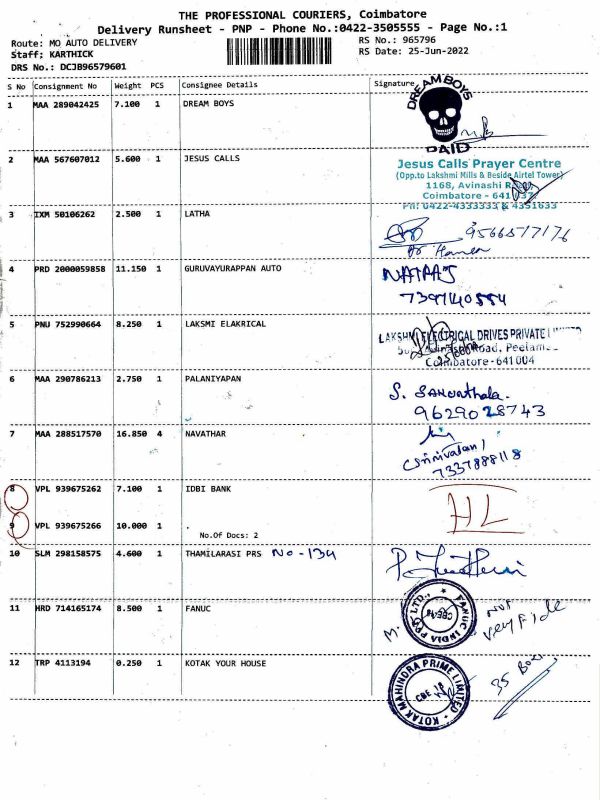 THE PROFESSIONAL COURIERS, Coimbatore
Delivery Runsheet - PNP - Phone No.:0422-3505555 - Page No.:1
Route: MO AUTO DELIVERY
RS No.: 965796
Staff: KARTHICK
RS Date: 25-Jun-2022
DRS No.: DCJB96579601
S No Consignment No Weight PCS Consignee Details Signature
1 MAA 289042425 7.100 1 DREAM BOYS
DREAM BOYS
PAID
2 MAA 567607012 5.600 1 JESUS CALLS
Jesus Calls Prayer Centre
(Opp.to Lakshmi Mills & Beside Airtel Tower)
1168, Avinashi
Coimbatore - 641 037
Ph: 0422-4333333 & 4351633
3 IXM 50106262 2.500 1 LATHA
9566517176
4 PRD 2000059858 11.150 1 GURUVAYURAPPAN AUTO
NATRAJ
7397140554
5 PNU 752990664 8.250 1 LAKSMI ELAKRICAL
LAKSHMI ELECTRICAL DRIVES PRIVATE LIMITED
Road, Peelamedu
Coimbatore-641 004
6 MAA 290786213 2.750 1 PALANIYAPAN
9629028743
7 MAA 288517570 16.850 4 NAVATHAR
7337888118
8 VPL 939675262 7.100 1 IDBI BANK
HL
9 VPL 939675266 10.000 1 .
No.Of Docs: 2
10 SLM 298158575 4.600 1 THAMILARASI PRS No-134
11 HRD 714165174 8.500 1 FANUC
FANUC INDIA PVT LTD.,
M.
Not
12 TRP 4113194 0.250 1 KOTAK YOUR HOUSE
KOTAK MAHINDRA PRIME LIMITED
CBE 18
35 Box